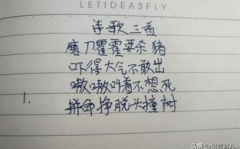 LETIDEASFLY
诗歌三首
磨刀霍霍要杀猪
吓得大气不敢出
嗷嗷叫着不想死
1.
拼命挣脱大撞树